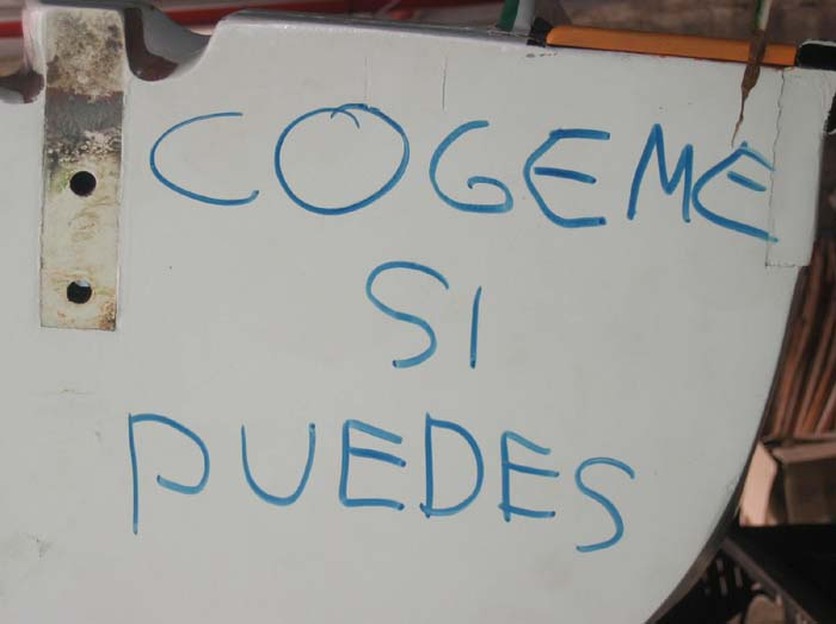 COGEME
SI
PUEDES